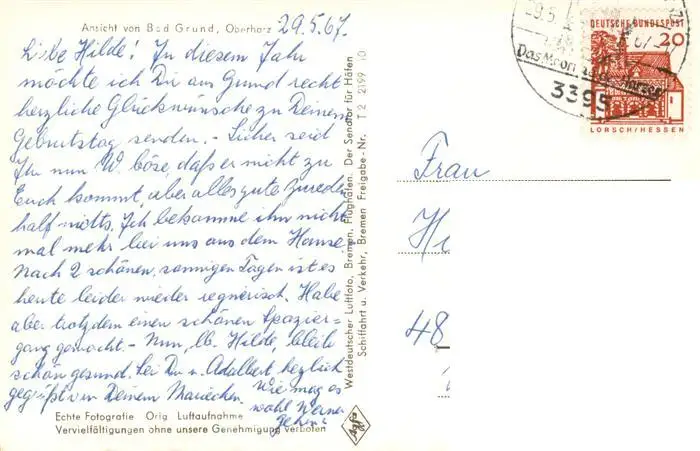 Ansicht von Bad Grund, Oberharz 29.5.67.
Liebe Hilde! In diesem Jahr
möchte ich Dir aus Grund recht
herzliche Glückwünsche zu Deinem
Geburtstag senden. - Sicher seid
Ihr nun W. böse, daß er nicht zu
Euch kommt, aber alles gute Zureden
half nichts. Ich bekomme ihn nicht
mal mehr bei uns aus dem Hause.
Nach 2 schönen, sonnigen Tagen ist es
heute leider wieder regnerisch. Habe
aber trotzdem einen schönen Spazier-
gang gemacht. - Nun, lb. Hilde, bleib
schön gesund. Sei Du u. Adalbert herzlich
gegrüßt von Deinem Mariechen.
Wie mag es
wohl Werner
gehen?
Echte Fotografie Orig. Luftaufnahme
Vervielfältigungen ohne unsere Genehmigung verboten
Westdeutscher Luftfoto, Bremen, Flughafen. Der Senator für Häfen
Schiffahrt u. Verkehr, Bremen Freigabe-Nr. T 2 2199
Agfa
DEUTSCHE BUNDESPOST
20
LORSCH/HESSEN
3395
Frau
Hi
48